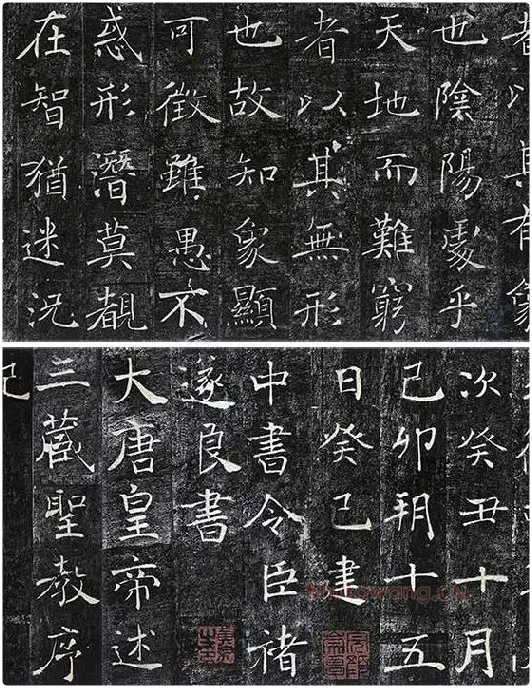 者以其有象
也陰陽處乎
天地而難窮
者以其無形
也故知象顯
可徵雖愚不
惑形潛莫覩
在智猶迷況
次癸丑十月
己卯朔十五
日癸巳建
中書令臣褚
遂良書
大唐皇帝述
三藏聖教序
記